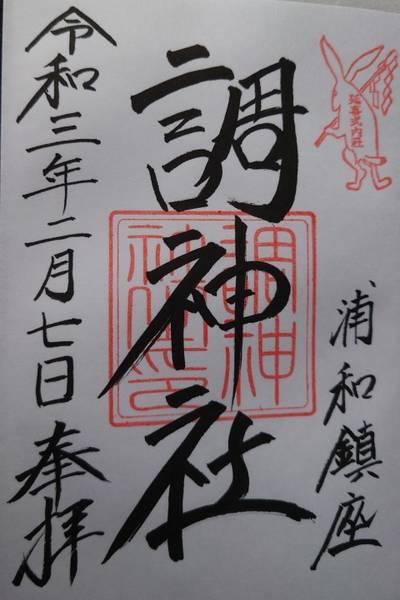 延喜式内社
浦和鎮座
調神社
調神社之印
令和三年二月七日 奉拝